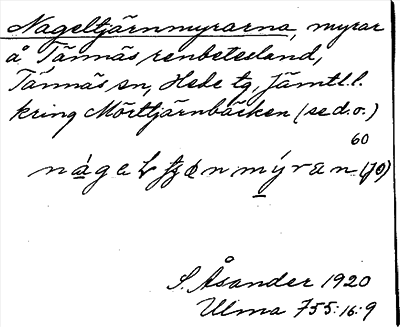 Nageltjärnmyrarna, myrar
å Tännäs renbetesland,
Tännäs sn, Hede tg, Jämtl. l.
kring Mörttjärnbäcken (se d. o.)
60
S. Åsander 1920
Ulma 755:16:9